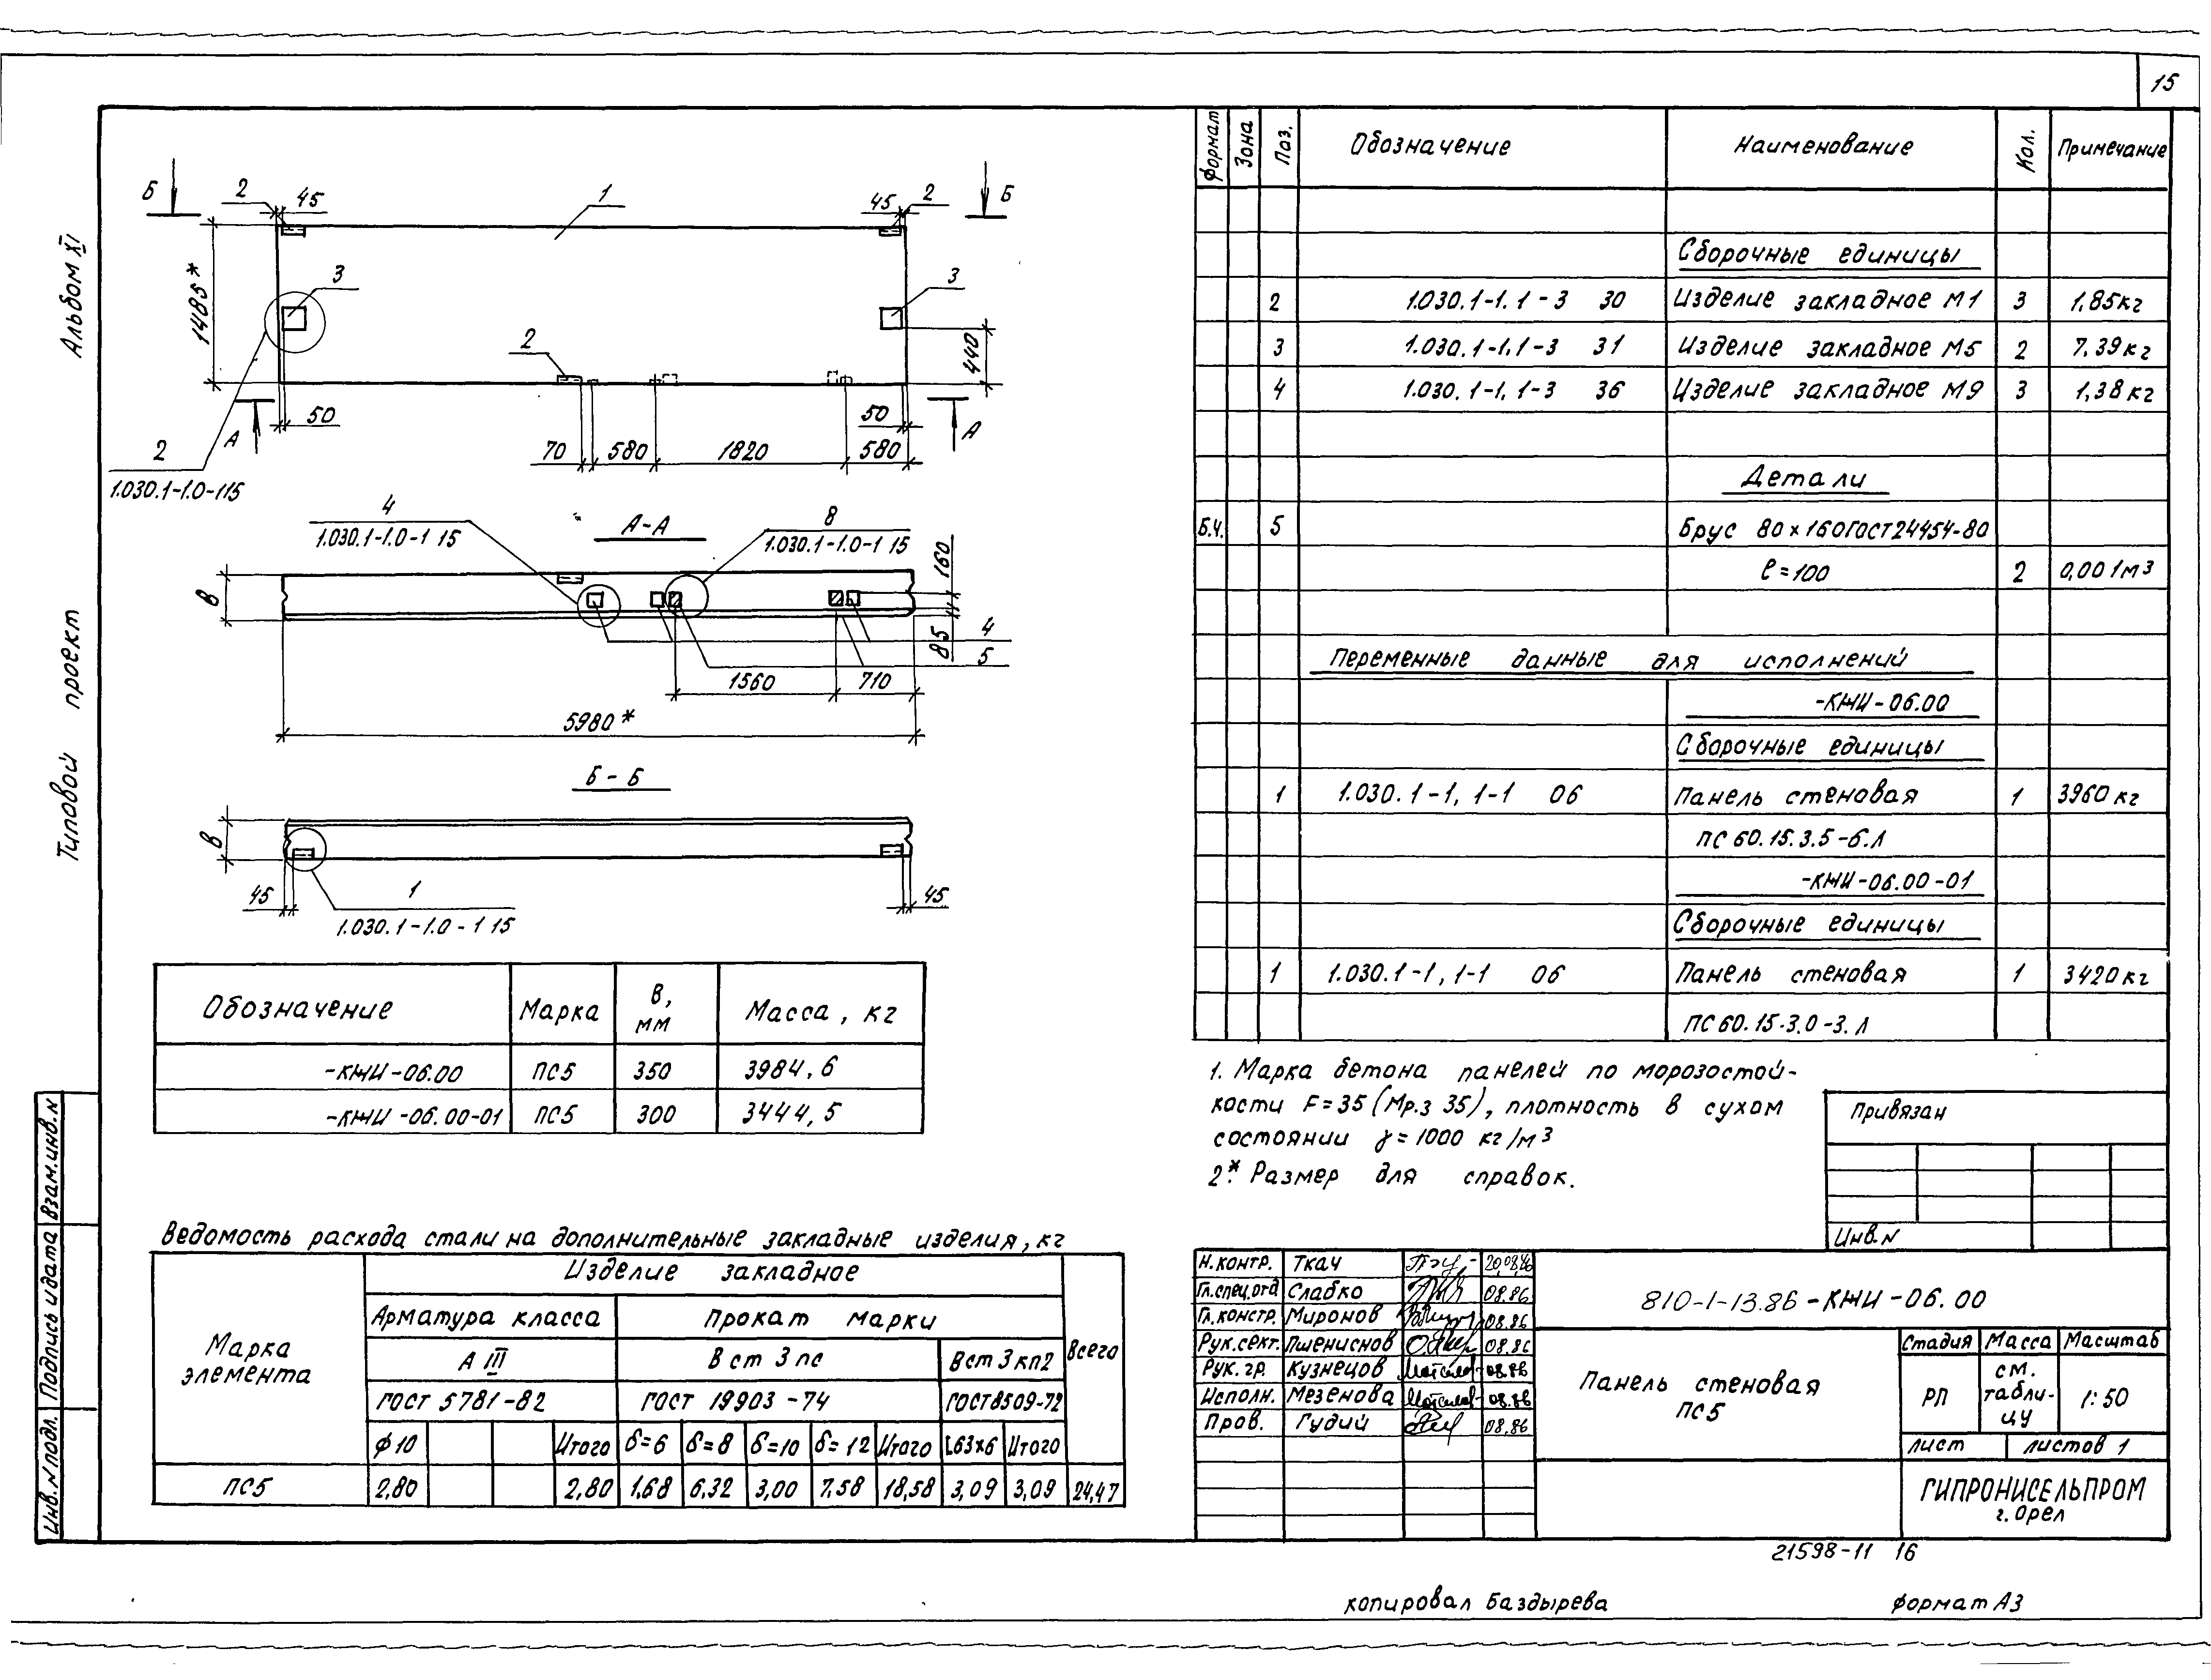 15
Альбом XI
Типовой проект
Взам.инв.N
Подпись и дата
Инв.N подл.
Б
2
45
1
45
2
Б
1485*
3
3
2
440
50
50
А
А
2
1.030.1-1.0-115
70
580
1820
580
4
1.030.1-1.0-1 15
А-А
8
1.030.1-1.0-1 15
В
160
85
4
5
1560
710
5980*
Б-Б
В
45
45
1
1.030.1-1.0-1 15
Обозначение Марка В, мм Масса, кг
-КЖИ-06.00 ПС5 350 3984,6
-КЖИ-06.00-01 ПС5 300 3444,5
Ведомость расхода стали на дополнительные закладные изделия, кг
Марка элемента
Изделие закладное
Всего
Арматура класса Прокат марки
А III Вст 3 пс Вст 3 кп2
ГОСТ 5781-82 ГОСТ 19903-74 ГОСТ 8509-72
ф10 Итого δ=6 δ=8 δ=10 δ=12 Итого L63х6 Итого
ПС5 2,80 2,80 1,68 6,32 3,00 7,58 18,58 3,09 3,09 24,47
Формат Зона Поз. Обозначение Наименование Кол. Примечание
Сборочные единицы
2 1.030.1-1.1-3 30 Изделие закладное М1 3 1,85кг
3 1.030.1-1.1-3 31 Изделие закладное М5 2 7,39кг
4 1.030.1-1.1-3 36 Изделие закладное М9 3 1,38кг
Детали
Б.Ч. 5 Брус 80х160 ГОСТ 24454-80
ℓ=100 2 0,001м3
Переменные данные для исполнений
-КЖИ-06.00
Сборочные единицы
1 1.030.1-1,1-1 06 Панель стеновая 1 3960кг
ПС 60.15.3.5-6.Л
-КЖИ-06.00-01
Сборочные единицы
1 1.030.1-1,1-1 06 Панель стеновая 1 3420кг
ПС 60.15-3.0-3.Л
1. Марка бетона панелей по морозостой-
кости F=35 (Мр.з 35), плотность в сухом
состоянии γ=1000 кг/м3
2*. Размер для справок.
Привязан
Инв.N
Н.контр. Ткач 20.08.86
Гл.спец.отд Слабко 08.86
Гл.констр. Миронов 08.86
Рук.сект. Пшениснов 08.86
Рук.гр. Кузнецов 08.86
Исполн. Мезенова 08.86
Пров. Гудий 08.86
810-1-13.86-КЖИ-06.00
Панель стеновая
ПС5
Стадия Масса Масштаб
РП см. табли-цу 1:50
Лист Листов 1
ГИПРОНИСЕЛЬПРОМ
г. Орел
21598-11 16
Копировал Баздырева Формат А3